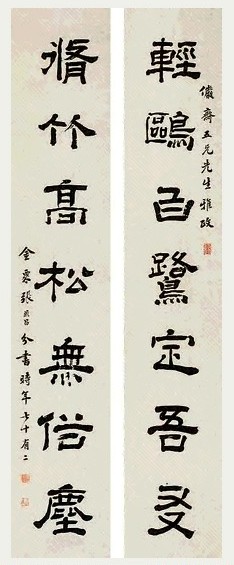 輕鷗白鷺定吾友
齊五兄先生雅政
脩竹高松無俗塵
金粟張昌分書時年七十有二